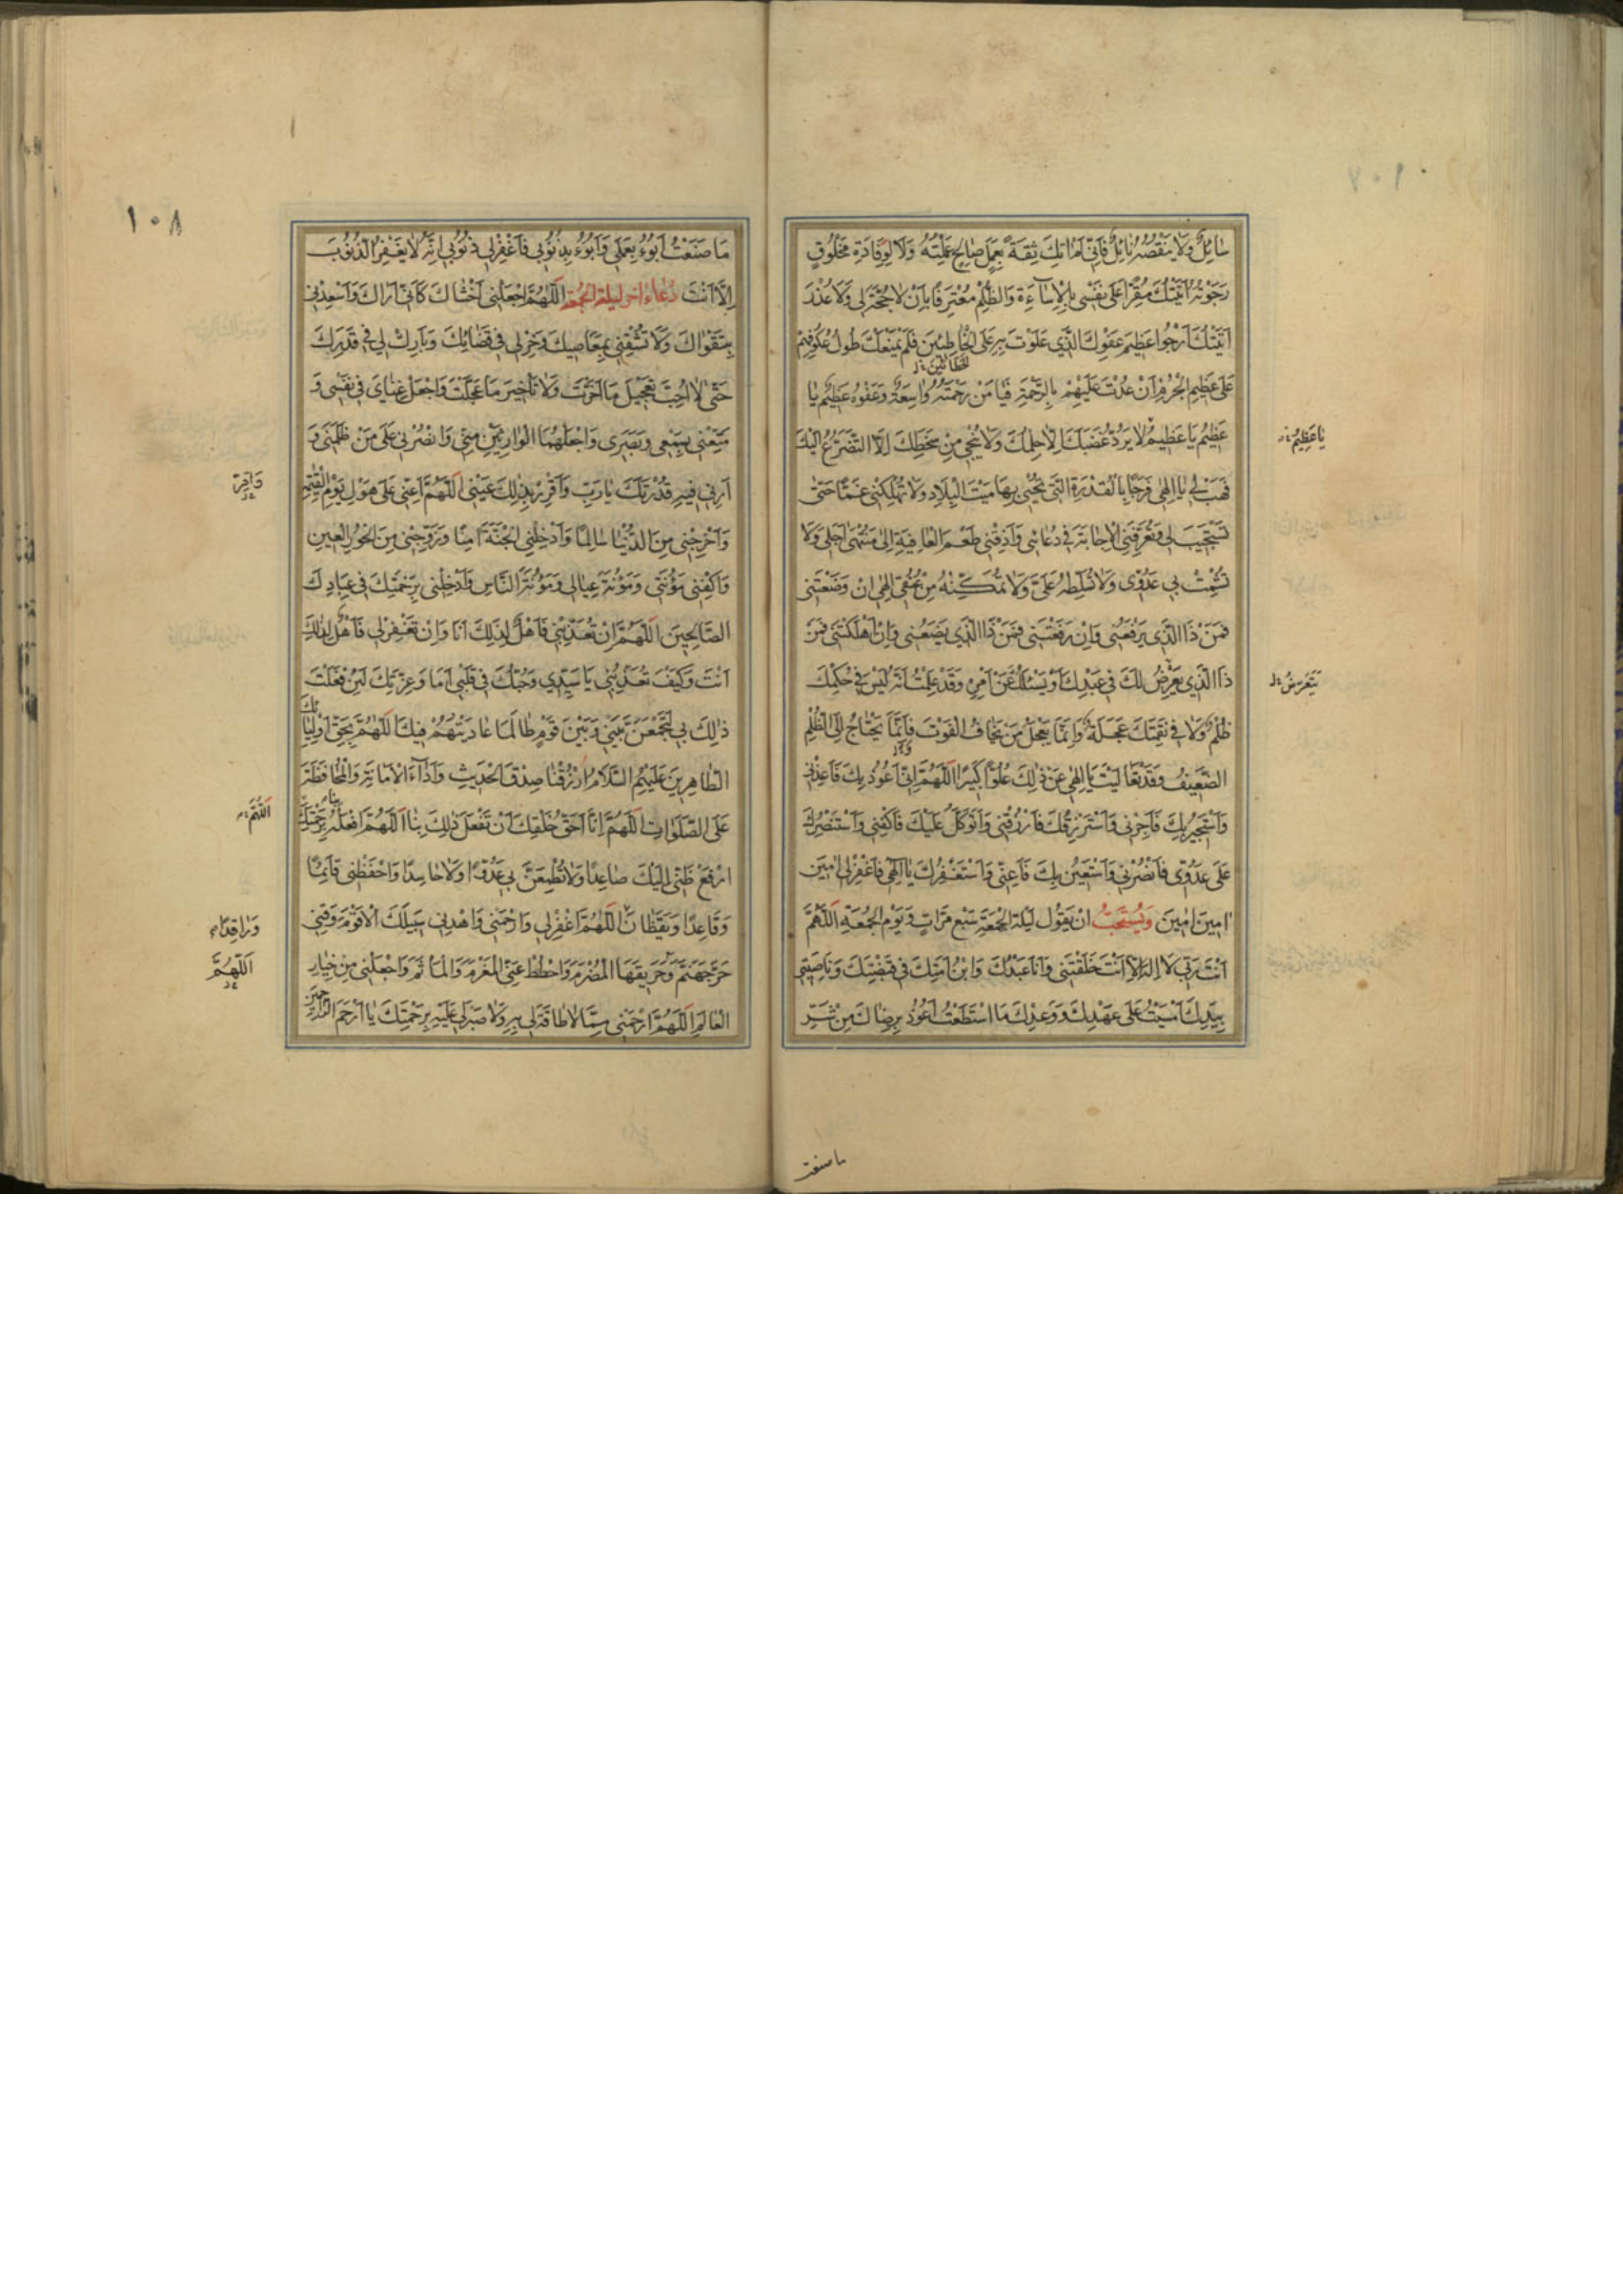 ١٠٧
سَائِلٌ وَلَا يَنْقُصُهُ نَائِلٌ فَاِنّي لَمْ اٰتِكَ ثِقَةً بِعَمَلٍ صَالِحٍ عَمِلْتُهُ وَلَا لِوِفَادَةِ مَخْلُوقٍ
رَجَوْتُهُ اَتَيْتُكَ مُقِرًّا عَلى نَفْسي بِالْاِسَاءَةِ وَالظُّلْمِ مُعْتَرِفًا بِاَنْ لَا حُجَّةَ لي وَلَا عُذْرَ
اَتَيْتُكَ اَرْجُو عَظيمَ عَفْوِكَ الَّذي عَلَوْتَ بِهِ عَلَى الْخَاطِئينَ فَلَمْ يَمْنَعْكَ طُولُ عُكُوفِهِمْ
الخطائين
عَلى عَظيمِ الْجُرْمِ اَنْ عُدْتَ عَلَيْهِمْ بِالرَّحْمَةِ فَيَا مَنْ رَحْمَتُهُ وَاسِعَةٌ وَعَفْوُهُ عَظيمٌ يَا
عَظيمُ يَا عَظيمُ لَا يَرُدُّ غَضَبَكَ اِلَّا حِلْمُكَ وَلَا يُنْجي مِنْ سَخَطِكَ اِلَّا التَّضَرُّعُ اِلَيْكَ
يَا عَظيمُ
فَهَبْ لي يَا اِلهي فَرَجًا بِالْقُدْرَةِ الَّتي تُحْيي بِهَا مَيْتَ الْبِلَادِ وَلَا تُهْلِكْني غَمًّا حَتّى
تَسْتَجيبَ لي وَتُعَرِّفَنِي الْاِجَابَةَ في دُعَائي وَاَذِقْني طَعْمَ الْعَافِيَةِ اِلى مُنْتَهى اَجَلي وَلَا
تُشْمِتْ بي عَدُوّي وَلَا تُسَلِّطْهُ عَلَيَّ وَلَا تُمَكِّنْهُ مِنْ عُنُقي اِلهي اِنْ وَضَعْتَني
فَمَنْ ذَا الَّذي يَرْفَعُني وَاِنْ رَفَعْتَني فَمَنْ ذَا الَّذي يَضَعُني وَاِنْ اَهْلَكْتَني فَمَنْ
ذَا الَّذي يَعْرِضُ لَكَ في عَبْدِكَ اَوْ يَسْئَلُكَ عَنْ اَمْرِهِ وَقَدْ عَلِمْتُ اَنَّهُ لَيْسَ في حُكْمِكَ
يَتَعَرَّضُ
ظُلْمٌ وَلَا في نَقِمَتِكَ عَجَلَةٌ وَاِنَّمَا يَعْجَلُ مَنْ يَخَافُ الْفَوْتَ فَاِنَّمَا يَحْتَاجُ اِلَى الظُّلْمِ
الضَّعيفُ وَقَدْ تَعَالَيْتَ يَا اِلهي عَنْ ذلِكَ عُلُوًّا كَبيرًا اَللّهُمَّ اِنّي اَعُوذُ بِكَ فَاَعِذْني
وَاَسْتَجيرُ بِكَ فَاَجِرْني وَاَسْتَرْزِقُكَ فَارْزُقْني وَاَتَوَكَّلُ عَلَيْكَ فَاكْفِني وَاَسْتَنْصِرُكَ
عَلى عَدُوّي فَانْصُرْني وَاَسْتَعينُ بِكَ فَاَعِنّي وَاَسْتَغْفِرُكَ يَا اِلهي فَاغْفِرْ لي امينَ
امينَ امينَ وَيُسْتَحَبُّ اَنْ يَقُولَ لَيْلَةَ الْجُمُعَةِ سَبْعَ مَرَّاتٍ وَيَوْمَ الْجُمُعَةِ اَللّهُمَّ
اَنْتَ رَبّي لَا اِلهَ اِلَّا اَنْتَ خَلَقْتَني وَاَنَا عَبْدُكَ وَابْنُ اَمَتِكَ في قَبْضَتِكَ وَنَاصِيَتي
بِيَدِكَ اَمْسَيْتُ عَلى عَهْدِكَ وَوَعْدِكَ مَا اسْتَطَعْتُ اَعُوذُ بِرِضَاكَ مِنْ شَرِّ
ما صنعت
١٠٨
مَا صَنَعْتُ اَبُوءُ بِعَمَلي وَاَبُوءُ بِذُنُوبي فَاغْفِرْ لي ذُنُوبي اِنَّهُ لَا يَغْفِرُ الذُّنُوبَ
اِلَّا اَنْتَ دُعَاءُ اخر ليلة الجمعة اَللّهُمَّ اجْعَلْني اَخْشَاكَ كَاَنّي اَرَاكَ وَاَسْعِدْني
بِتَقْوَاكَ وَلَا تُشْقِني بِمَعَاصيكَ وَخِرْ لي في قَضَائِكَ وَبَارِكْ لي في قَدَرِكَ
حَتّى لَا اُحِبَّ تَعْجيلَ مَا اَخَّرْتَ وَلَا تَاْخيرَ مَا عَجَّلْتَ وَاجْعَلْ غِنَايَ في نَفْسي وَ
مَتِّعْني بِسَمْعي وَبَصَري وَاجْعَلْهُمَا الْوَارِثَيْنِ مِنّي وَانْصُرْني عَلى مَنْ ظَلَمَني وَ
اَرِني فيهِ قُدْرَتَكَ يَا رَبِّ وَاَقْرِرْ بِذلِكَ عَيْني اَللّهُمَّ اَعِنّي عَلى هَوْلِ يَوْمِ الْقِيمَةِ
وَاَقِرَّ
وَاَخْرِجْني مِنَ الدُّنْيَا سَالِمًا وَاَدْخِلْنِي الْجَنَّةَ امِنًا وَزَوِّجْني مِنَ الْحُورِ الْعينِ
وَاكْفِني مَؤُنَتي وَمَؤُنَةَ عِيَالي وَمَؤُنَةَ النَّاسِ وَاَدْخِلْني بِرَحْمَتِكَ في عِبَادِكَ
الصَّالِحينَ اَللّهُمَّ اِنْ تُعَذِّبْني فَاَهْلٌ لِذلِكَ اَنَا وَاِنْ تَغْفِرْ لي فَاَهْلٌ لِذلِكَ
اَنْتَ وَكَيْفَ تُعَذِّبُني يَا سَيِّدي وَحُبُّكَ في قَلْبي اَمَا وَعِزَّتِكَ لَئِنْ فَعَلْتَ
ذلِكَ بي لَتَجْمَعَنَّ بَيْني وَبَيْنَ قَوْمٍ طَالَمَا عَادَيْتُهُمْ فيكَ اَللّهُمَّ بِحَقِّ اَوْلِيَائِكَ
الطَّاهِرينَ عَلَيْهِمُ السَّلَامُ ارْزُقْنَا صِدْقَ الْحَديثِ وَاَدَاءَ الْاَمَانَةِ وَالْمُحَافَظَةَ
عَلَى الصَّلَوَاتِ اَللّهُمَّ اِنَّا اَحَقُّ خَلْقِكَ اَنْ تَفْعَلَ ذلِكَ بِنَا اَللّهُمَّ افْعَلْهُ بِنَا بِرَحْمَتِكَ
اَللّهُمَّ
ارْفَعْ ظَنّي اِلَيْكَ صَاعِدًا وَلَا تُطْمِعَنَّ بي عَدُوًّا وَلَا حَاسِدًا وَاحْفَظْني قَائِمًا
وَقَاعِدًا وَيَقْظَانًا اَللّهُمَّ اغْفِرْ لي وَارْحَمْني وَاهْدِني سَبيلَكَ الْاَقْوَمَ وَقِني
وَرَاقِدًا
حَرَّ جَهَنَّمَ وَحَريقَهَا الْمُضْرَمَ وَاحْطُطْ عَنِّي الْمَغْرَمَ وَالْمَاْثَمَ وَاجْعَلْني مِنْ خِيَارِ
اَللّهُمَّ
الْعَالَمِ اَللّهُمَّ ارْحَمْني مِمَّا لَا طَاقَةَ لي بِهِ وَلَا صَبْرَ لي عَلَيْهِ بِرَحْمَتِكَ يَا اَرْحَمَ الرَّاحِمينَ